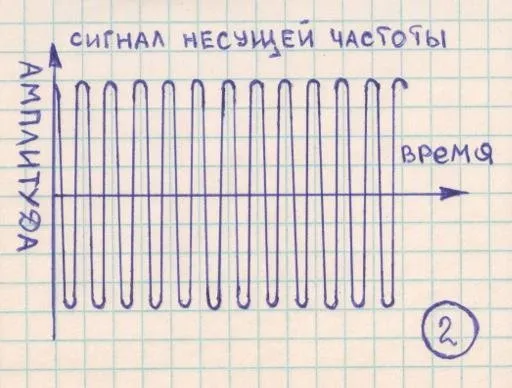 СИГНАЛ НЕСУЩЕЙ ЧАСТОТЫ
АМПЛИТУДА
ВРЕМЯ
2